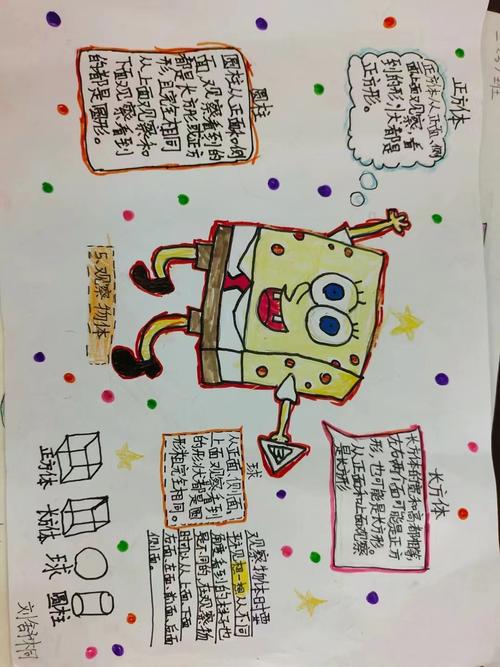 正方体
正方体从正面、侧
面、上面观察看
到的形状都是
正方形。
长方体
长方体的宽和高都相等
左右两个面可能是正方
形,也可能是长方形。
从正面和上面观察
是长方形
圆柱
圆柱从正面和侧
面观察看到的
都是长方形或正方
形,且完全相同
从上面观察和
下面观察看到
的都是圆形。
球
从正面、侧面、
上面观察看到
的形状都是圆
形相完全相同。
观察物体时要
想一想从不同
角度看到的样子也
是不同的,在观察物
时可以从上面、正面
左面、右面、前面、后面
侧面。
5、观察物体
正方体
长方体
球
圆柱
刘